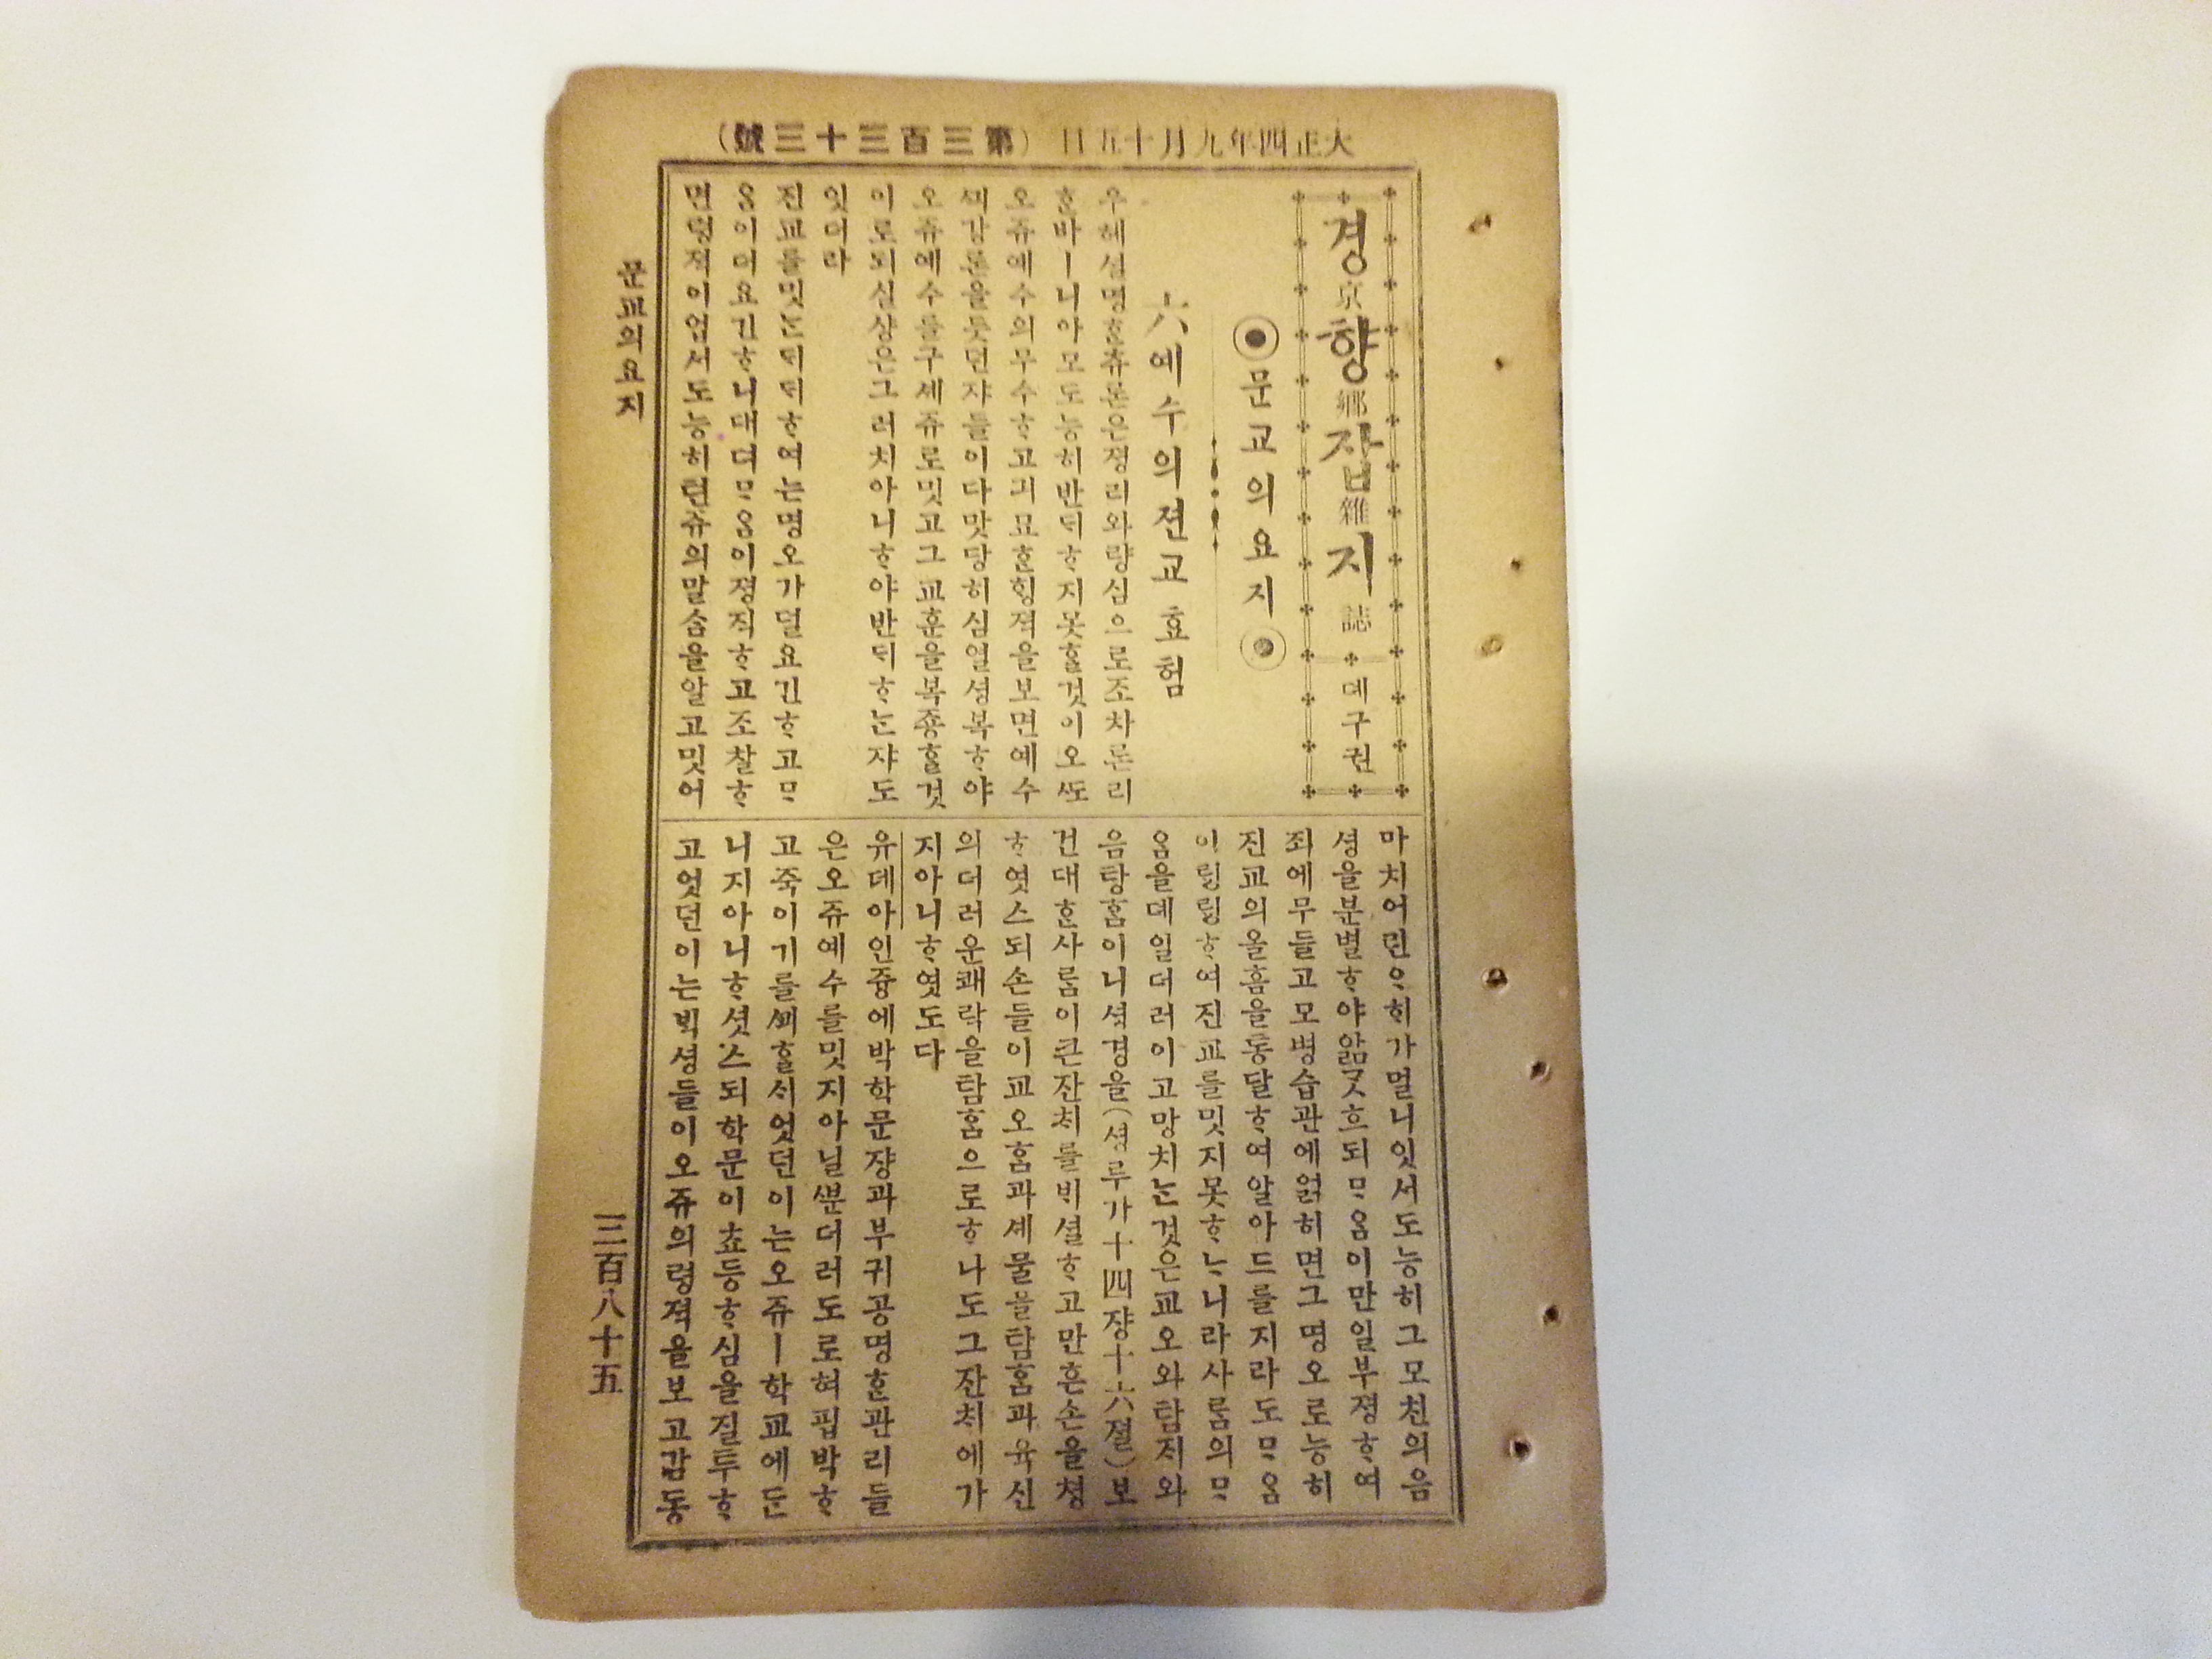 大正四年九月十五日 (第三百三十三號)
경京향鄕잡雜지誌 데구권
◉문교의요지◉
六예수의젼교효험
우헤설명ᄒᆞᆫ쥬론은졍리와량심으로조차론리
ᄒᆞᆯ바ㅣ니아모도능히반ᄃᆡᄒᆞ지못ᄒᆞᆯ것이오ᄯᅩ
오쥬예수의무수ᄒᆞ고긔묘ᄒᆞᆫᄒᆡᆼ젹을보면예수
ᄭᅴ강론을듯던쟈들이다맛당히심열셩복ᄒᆞ야
오쥬예수를구셰쥬로밋고그교훈을복죵ᄒᆞᆯ것
이로되실샹은그러치아니ᄒᆞ야반ᄃᆡᄒᆞᄂᆞᆫ쟈도
잇더라
진교를밋ᄂᆞᆫᄃᆡᄃᆡᄒᆞ여는명오가덜요긴ᄒᆞ고ᄆᆞ
ᄋᆞᆷ이더요긴ᄒᆞ니대뎌ᄆᆞᄋᆞᆷ이졍직ᄒᆞ고조찰ᄒᆞ
면령젹이업서도능히텬쥬의말ᄉᆞᆷ을알고밋어
마치어린ᄋᆞ히가멀니잇서도능히그모친의음
셩을분별ᄒᆞ야앎ᄀᆞᆺ흐되ᄆᆞᄋᆞᆷ이만일부졍ᄒᆞ여
죄에무들고모병습관에얽히면그명오로능히
진교의올흠을통달ᄒᆞ여알아드를지라도ᄆᆞᄋᆞᆷ
이링링ᄒᆞ여진교를밋지못ᄒᆞᄂᆞ니라사ᄅᆞᆷ의ᄆᆞ
ᄋᆞᆷ을뎨일더러이고망치ᄂᆞᆫ것은교오와탐ᄌᆡ와
음탕홈이니셩경을(셩루가十四쟝十六졀)보
건대ᄒᆞᆫ사ᄅᆞᆷ이큰잔ᄎᆡ를ᄇᆡ셜ᄒᆞ고만흔손을쳥
ᄒᆞ엿스되손들이교오홈과셰물을탐홈과육신
의더러온쾌락을탐홈으로ᄒᆞ나도그잔ᄎᆡ에가
지아니ᄒᆞ엿도다
유데아인즁에박학문쟝과부귀공명ᄒᆞᆫ관리들
은오쥬예수를밋지아닐ᄲᅮᆫ더러도로혀핍박ᄒᆞ
고죽이기를ᄭᅬᄒᆞᆯᄉᆡ엇던이는오쥬ㅣ학교에ᄃᆞᆫ
니지아니ᄒᆞ셧스되학문이쵸등ᄒᆞ심을질투ᄒᆞ
고엇던이는ᄇᆡᆨ셩들이오쥬의령젹을보고감동
문교의요지
三百八十五